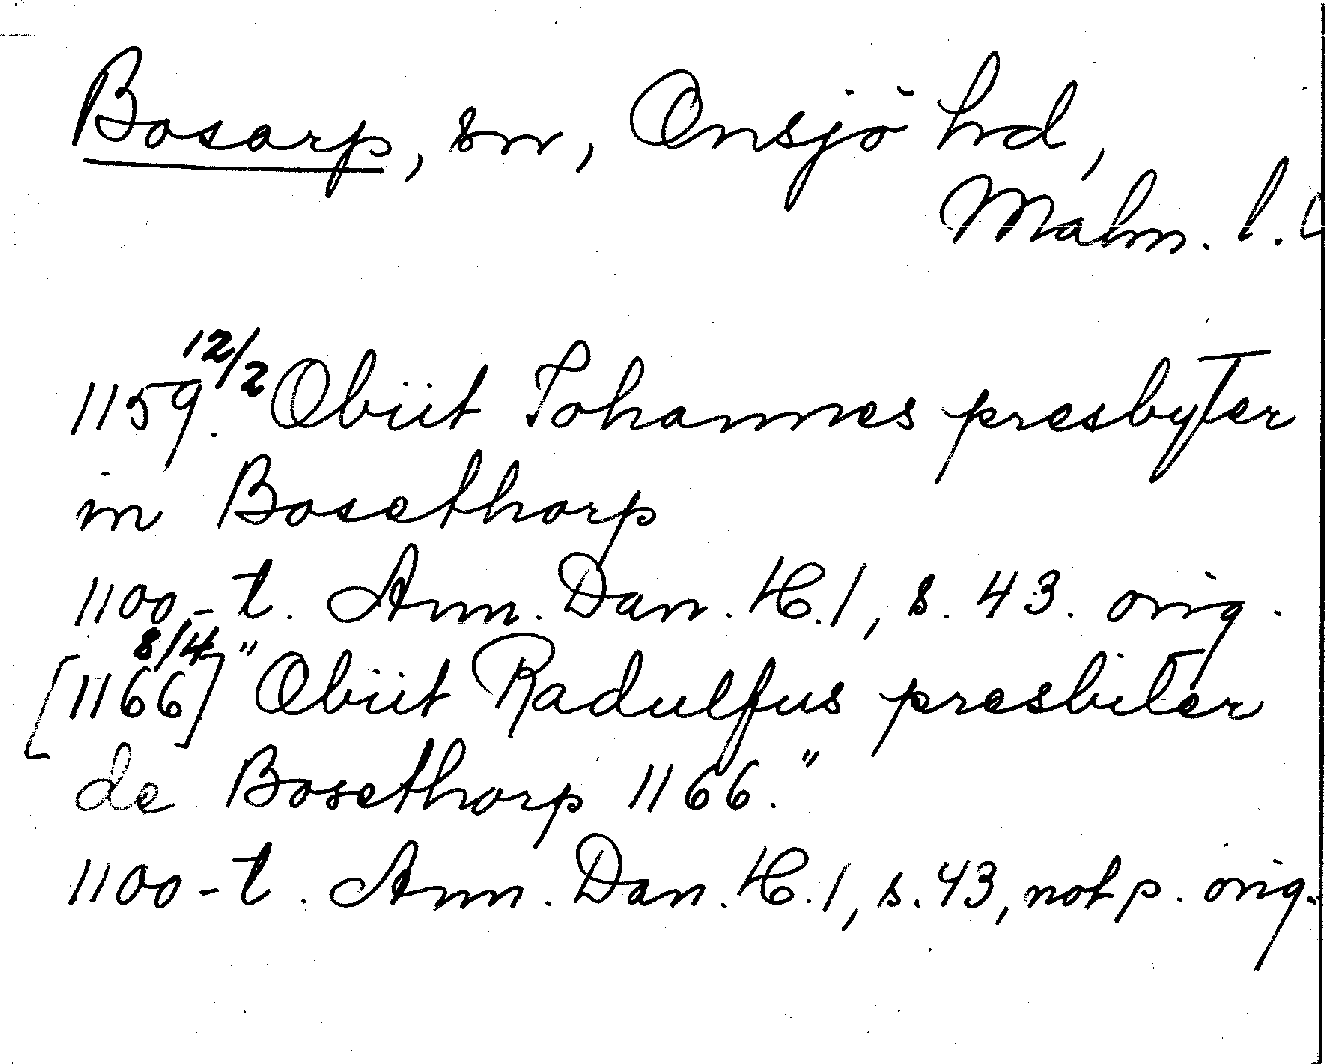 Bosarp, sn, Onsjö hd,
Malm. l.
1159. 12/2 Obiit Johannes presbyter
in Bosethorp
1100-t. Ann. Dan. H. 1, s. 43. orig.
[1166] 8/4 "Obiit Radulfus presbiter
de Bosethorp 1166."
1100-t. Ann. Dan. H. 1, s. 43, not p. orig.